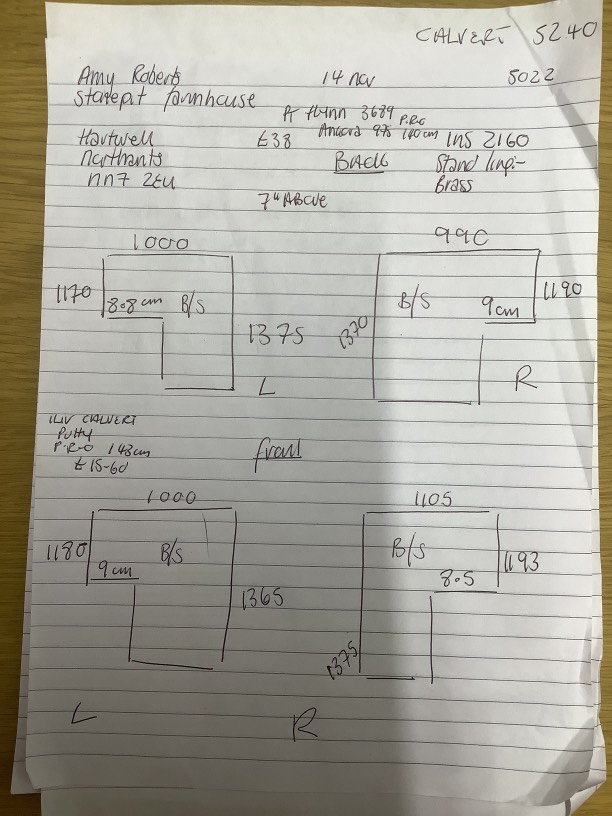 CALVERT 5240
Amy Roberts 14 Nov 5022
farmhouse
Pt flynn 3689 P.R.O
Hartwell £38 140cm INS 2160
Northants BACK Stand
NN7 2EU Brass
7" ABOVE
1000 990
1170 8.8cm B/S B/S 9cm 1190
1375 1370
L R
CALVERT
Putty
P.R.O 143cm front
£15-60
1000 1105
1180 B/S B/S 1193
9cm 8.5
1365
1375
L R